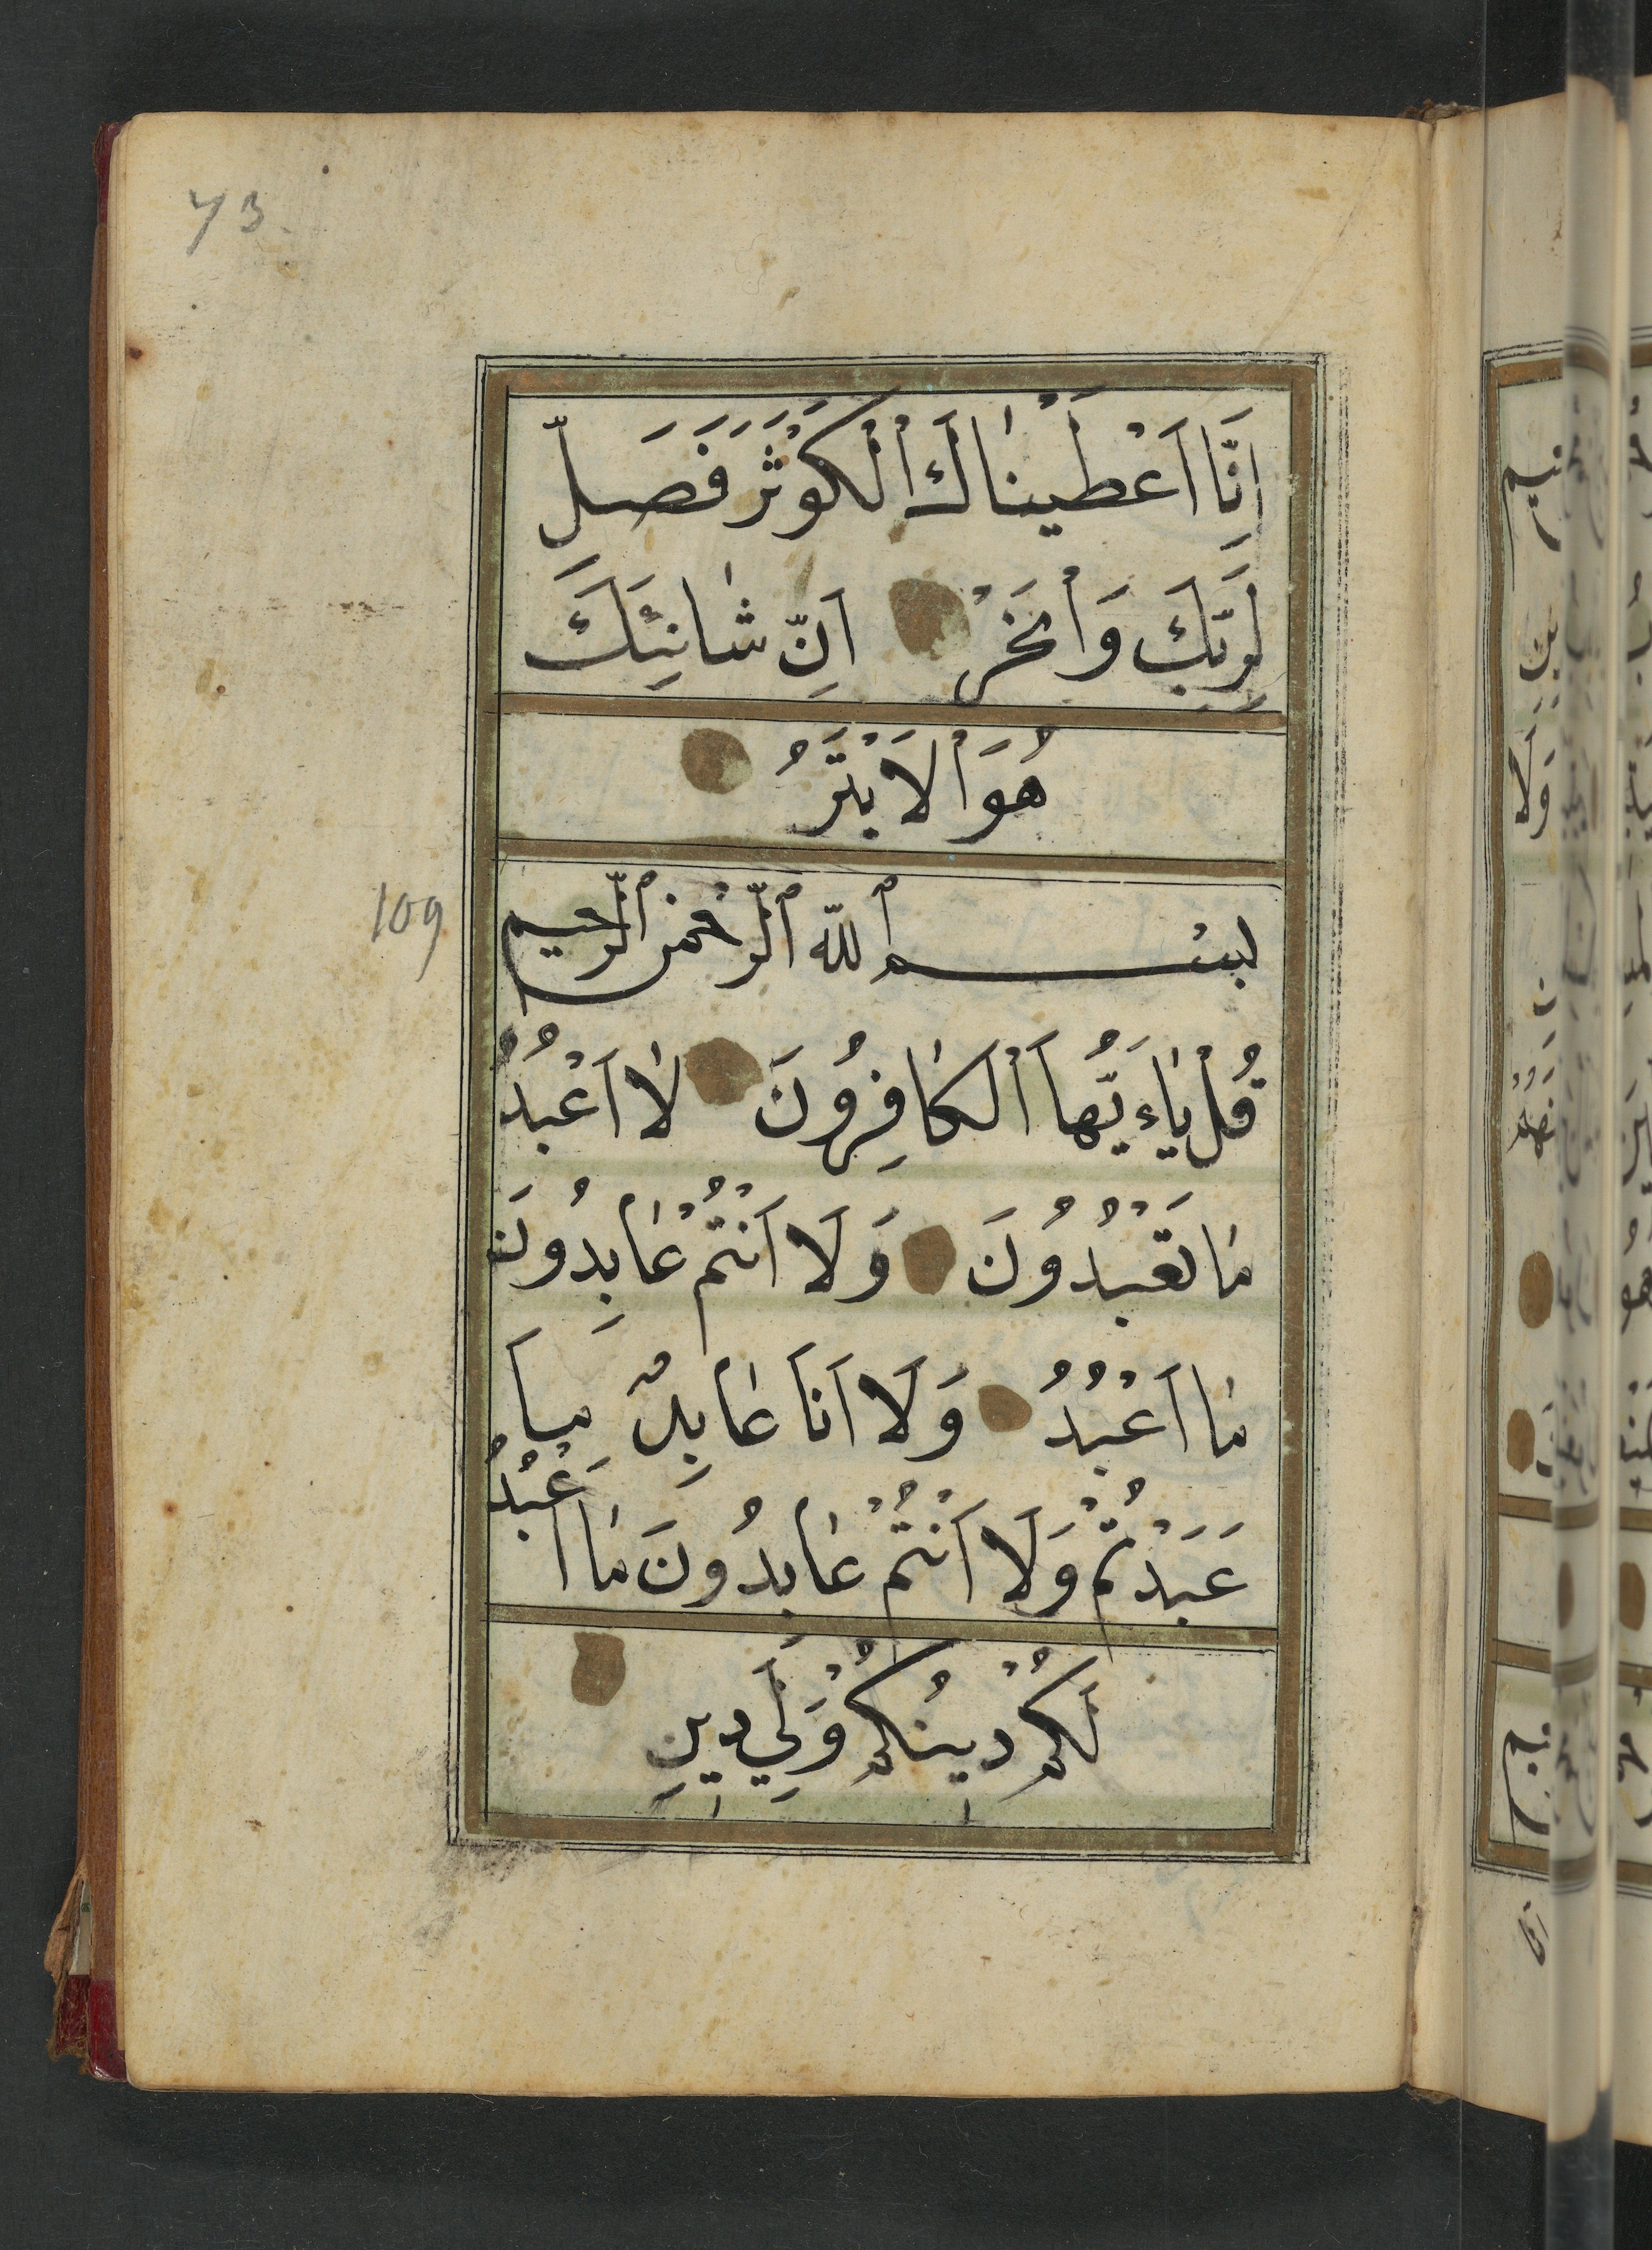 73
اِنَّا اَعْطَيْنٰاكَ اْلْكَوْثَرَ فَصَلِّ
لِرَبِّكَ وَاْنْحَرْ اِنَّ شٰانِئَكَ
هُوَ اْلاَبْتَرُ
109
بسْم ٱللّه ٱلرّحْمن ٱلرّحيم
قُلْ يٰاءَيُّهاَ اْلْكٰافِرُونَ لاٰ اَعْبُدُ
مٰا تَعْبُدُونَ وَلاَ اَنْتُمْ عٰابِدُونَ
مٰا اَعْبُدُ وَلاَ اَنَا عٰابِدٌ مٰا
عَبَدْتُمْ وَلاَ اَنْتُمْ عٰابِدُونَ مٰا اَعْبُدُ
لَكُمْ دِينُكُمْ وَلِيَ دِينِ